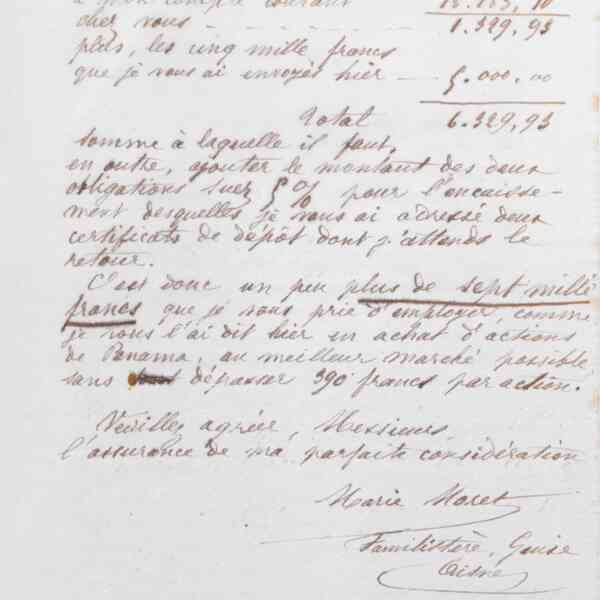 à mon compte courant
chez vous - - - - - - 1.329,93
plus, les cinq mille francs
que je vous ai envoyés hier — 5.000,00
Total 6.329,93
somme à laquelle il faut,
en outre, ajouter le montant des deux
obligations Suez 5 % pour l'encaisse-
ment desquelles je vous ai adressé deux
certificats de dépôt dont j'attends le
retour.
C'est donc un peu plus de sept mille
francs que je vous prie d'employer, comme
je vous l'ai dit hier en achat d'actions
de Panama, au meilleur marché possible
sans dépasser 390 francs par action.
Veuillez agréer, Messieurs
l'assurance de ma parfaite considération
Marie Moret
Familistère, Guise
Aisne